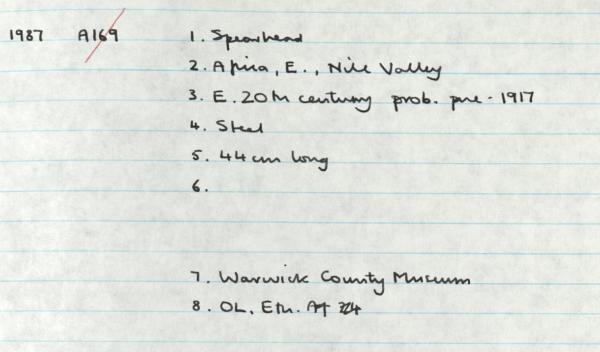 1987 A169 1. Spearhead
2. Africa, E., Nile Valley
3. E. 20th century prob. pre-1917
4. Steel
5. 44cm long
6.
7. Warwick County Museum
8. OL. Eth. Af 324